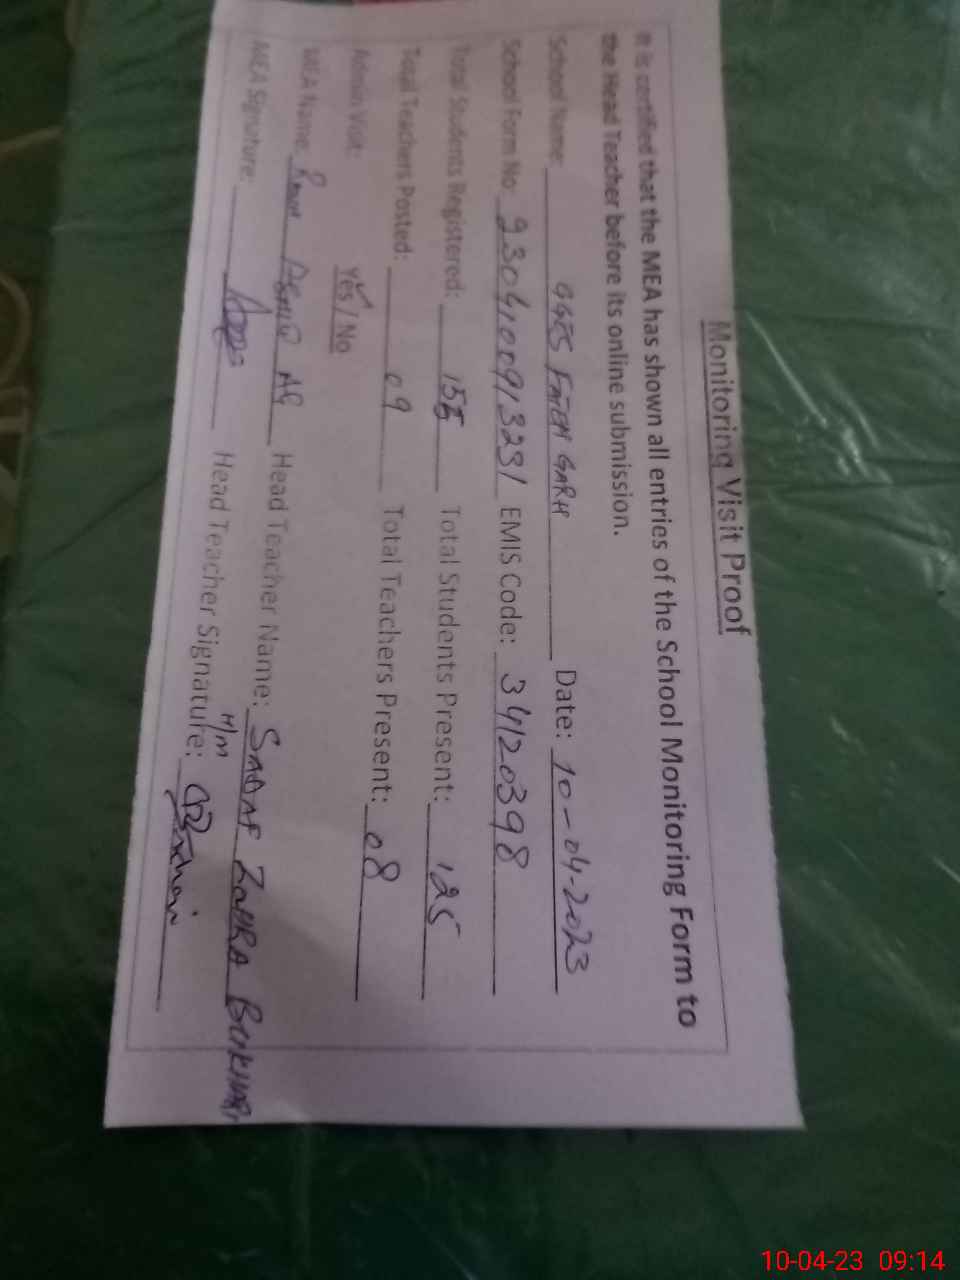 Monitoring Visit Proof
It is certified that the MEA has shown all entries of the School Monitoring Form to
the Head Teacher before its online submission.
School Name: GGES FATEH GARH Date: 10-04-2023
School Form No: 2304100913231 EMIS Code: 34120398
Total Students Registered: 155 Total Students Present: 125
Total Teachers Posted: 09 Total Teachers Present: 08
Admin Visit: Yes / No
MEA Name: Head Teacher Name: SADAF ZAHRA BUKHARI
H/M
MEA Signature: Head Teacher Signature:
10-04-23 09:14